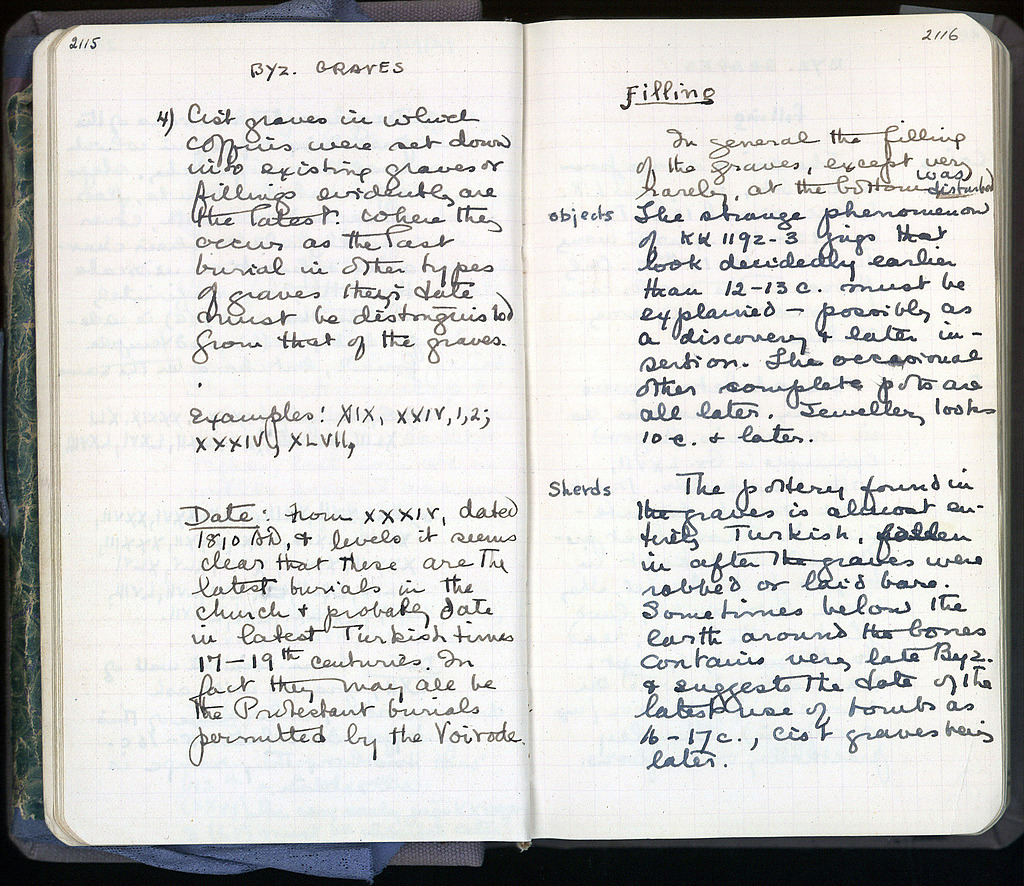 2115
BYZ. GRAVES
4) Cist graves in which
coffins were set down
into existing graves or
fillings evidently are
the latest. Where they
occur as the last
burial in other types
of graves their date
must be distinguished
from that of the graves.
Examples: XIX, XXIV, 1, 2;
XXXIV, XLVII,
Date: from XXXIV, dated
1810 AD, & levels it seems
clear that these are the
latest burials in the
church & probably date
in latest Turkish times
17–19th centuries. In
fact they may all be
the Protestant burials
permitted by the Voivode.
2116
Filling
In general the filling
of the graves, except very
rarely, at the bottom was disturbed
objects The strange phenomenon
of KK 1192-3 jugs that
look decidedly earlier
than 12-13 c. must be
explained – possibly as
a discovery & later in-
sertion. The occasional
other complete pots are
all later. Jewellery looks
10 c. & later.
Sherds The pottery found in
the graves is almost en-
tirely Turkish, fallen
in after the graves were
robbed or laid bare.
Sometimes below the
earth around the bones
contains very late Byz.
& suggests the date of the
latest use of tombs as
16–17 c., cist graves being
later.